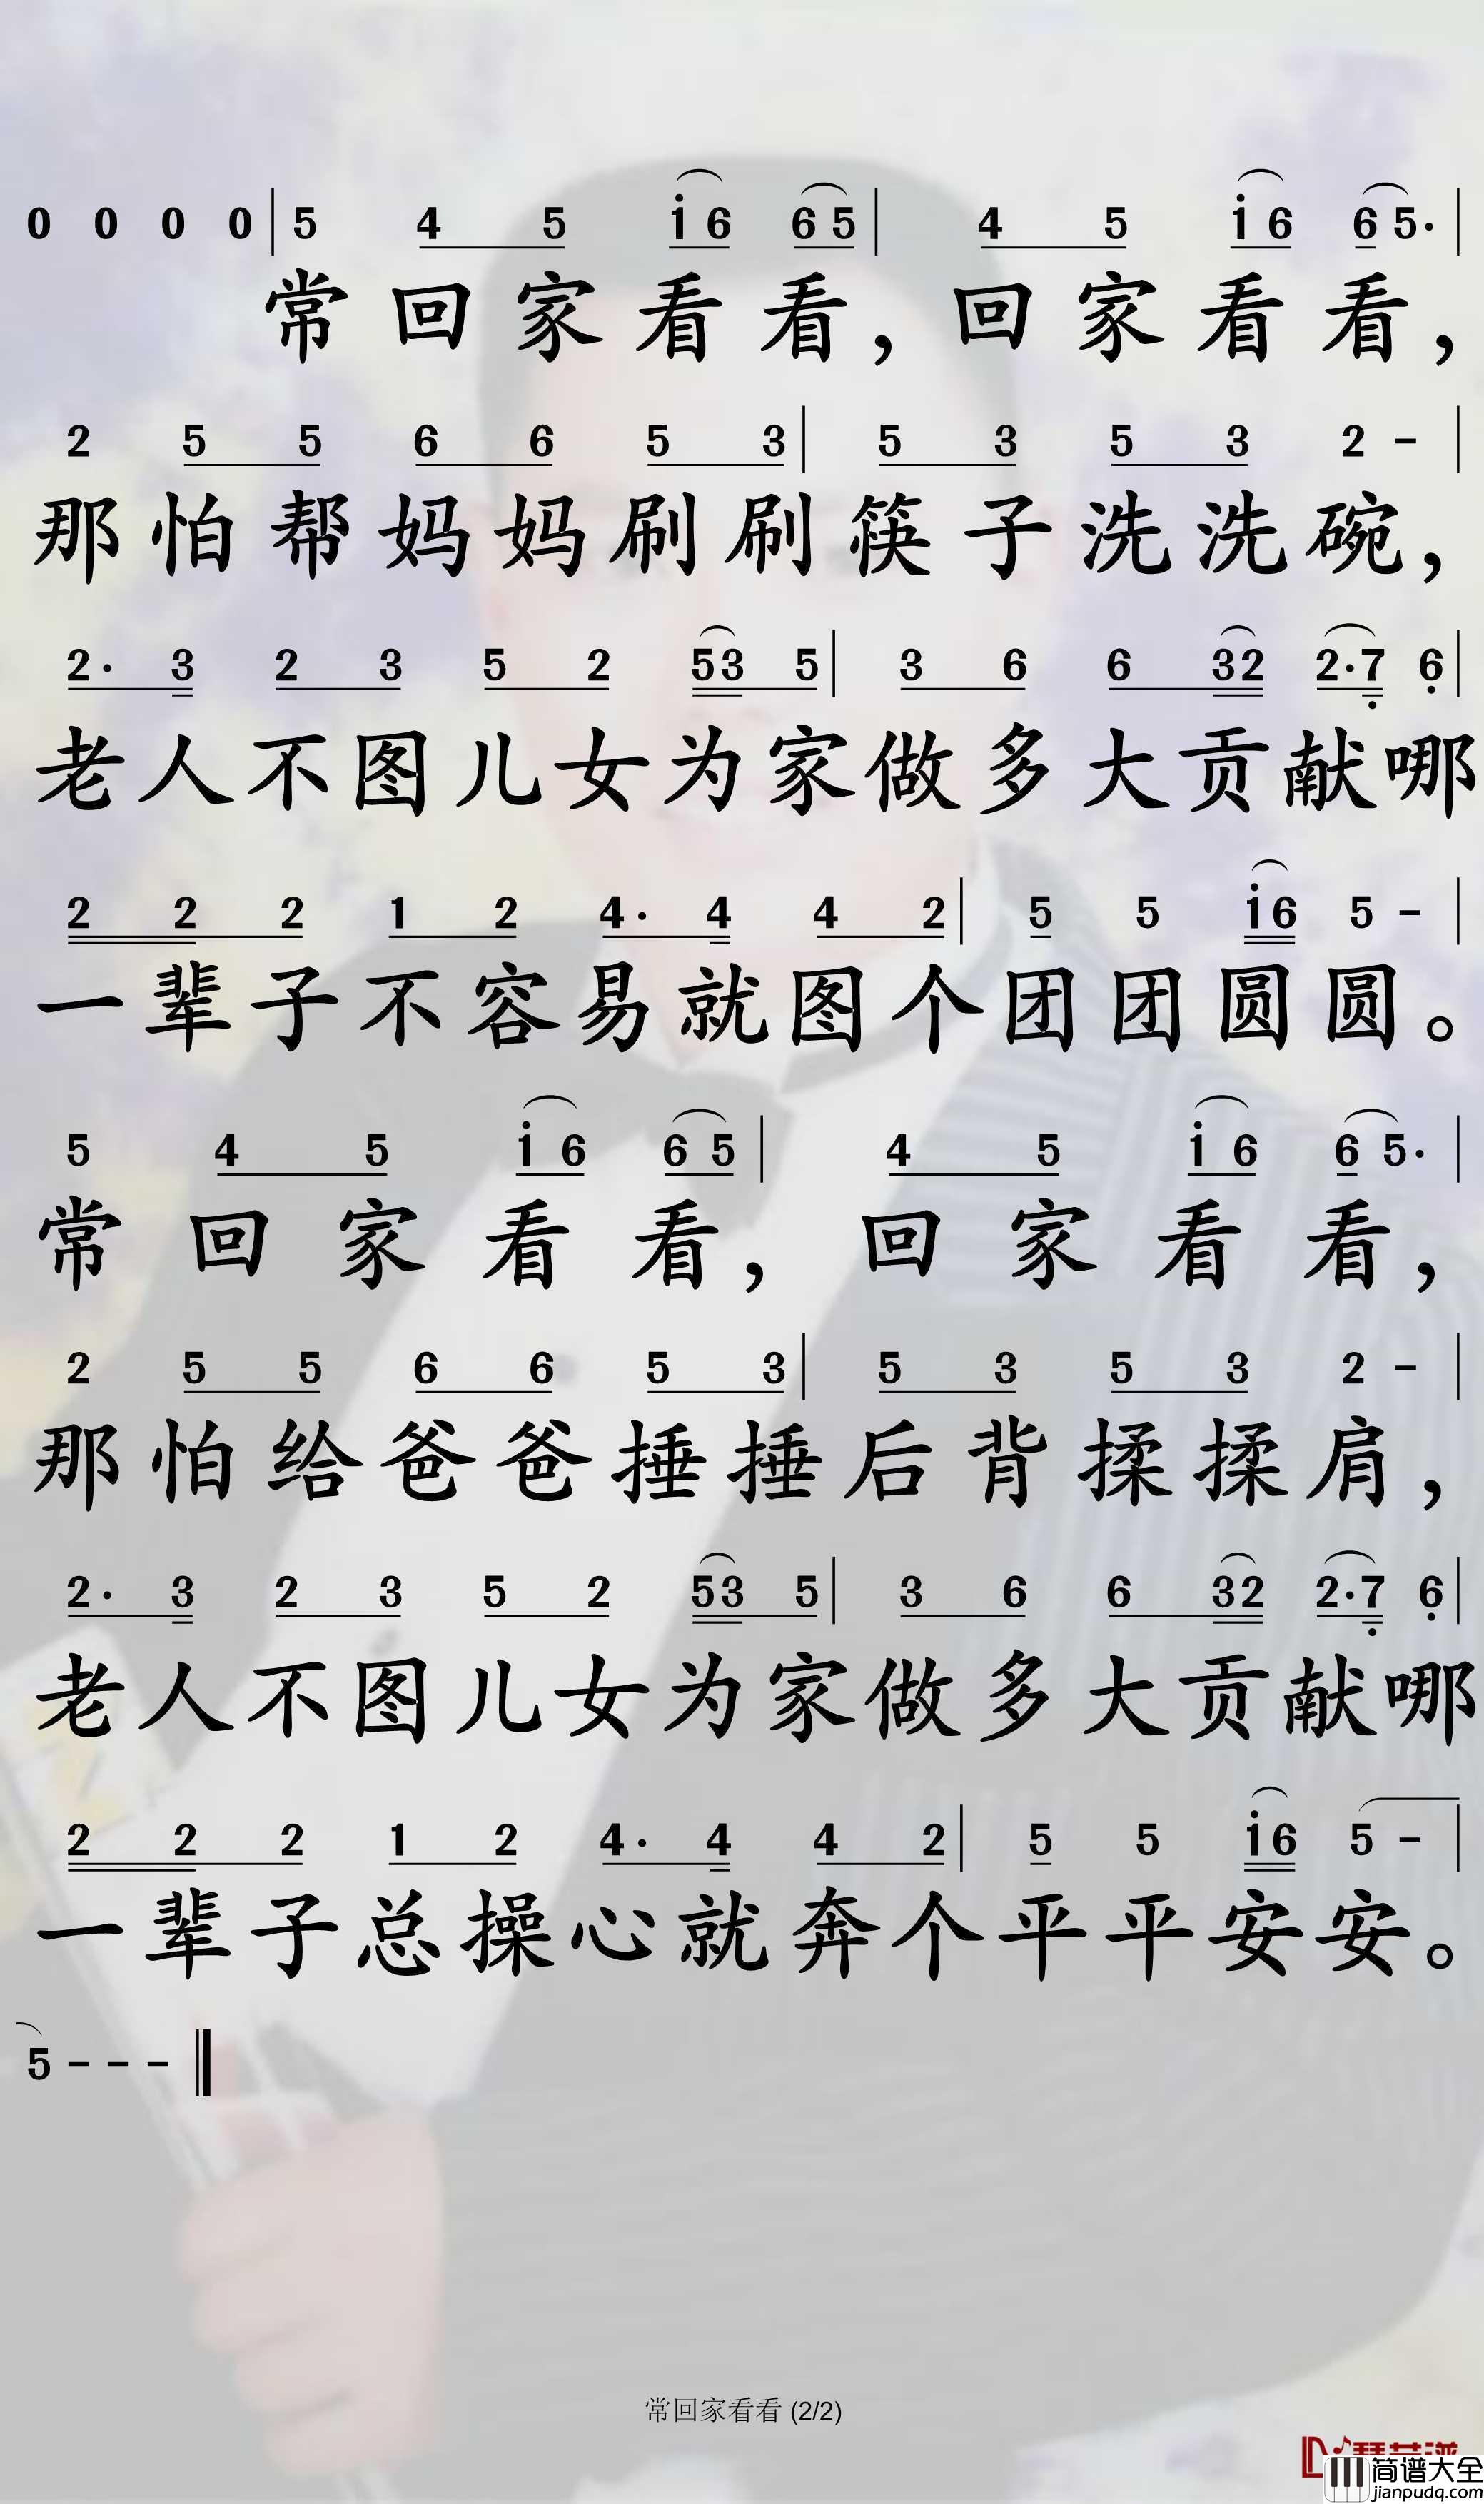 0 0 0 0 | 5 4 5 i 6 6 5 | 4 5 i 6 6 5· |
常回家看看，回家看看，
2 5 5 6 6 5 3 | 5 3 5 3 2 - |
那怕帮妈妈刷刷筷子洗洗碗，
2· 3 2 3 5 2 53 5 | 3 6 6 32 2·7 6 |
老人不图儿女为家做多大贡献哪
2 2 2 1 2 4· 4 4 2 | 5 5 i6 5 - |
一辈子不容易就图个团团圆圆。
5 4 5 i 6 6 5 | 4 5 i 6 6 5· |
常回家看看，回家看看，
2 5 5 6 6 5 3 | 5 3 5 3 2 - |
那怕给爸爸捶捶后背揉揉肩，
2· 3 2 3 5 2 53 5 | 3 6 6 32 2·7 6 |
老人不图儿女为家做多大贡献哪
2 2 2 1 2 4· 4 4 2 | 5 5 i6 5 - |
一辈子总操心就奔个平平安安。
5 - - - ‖
常回家看看 (2/2)
简谱大全
jianpudq.com